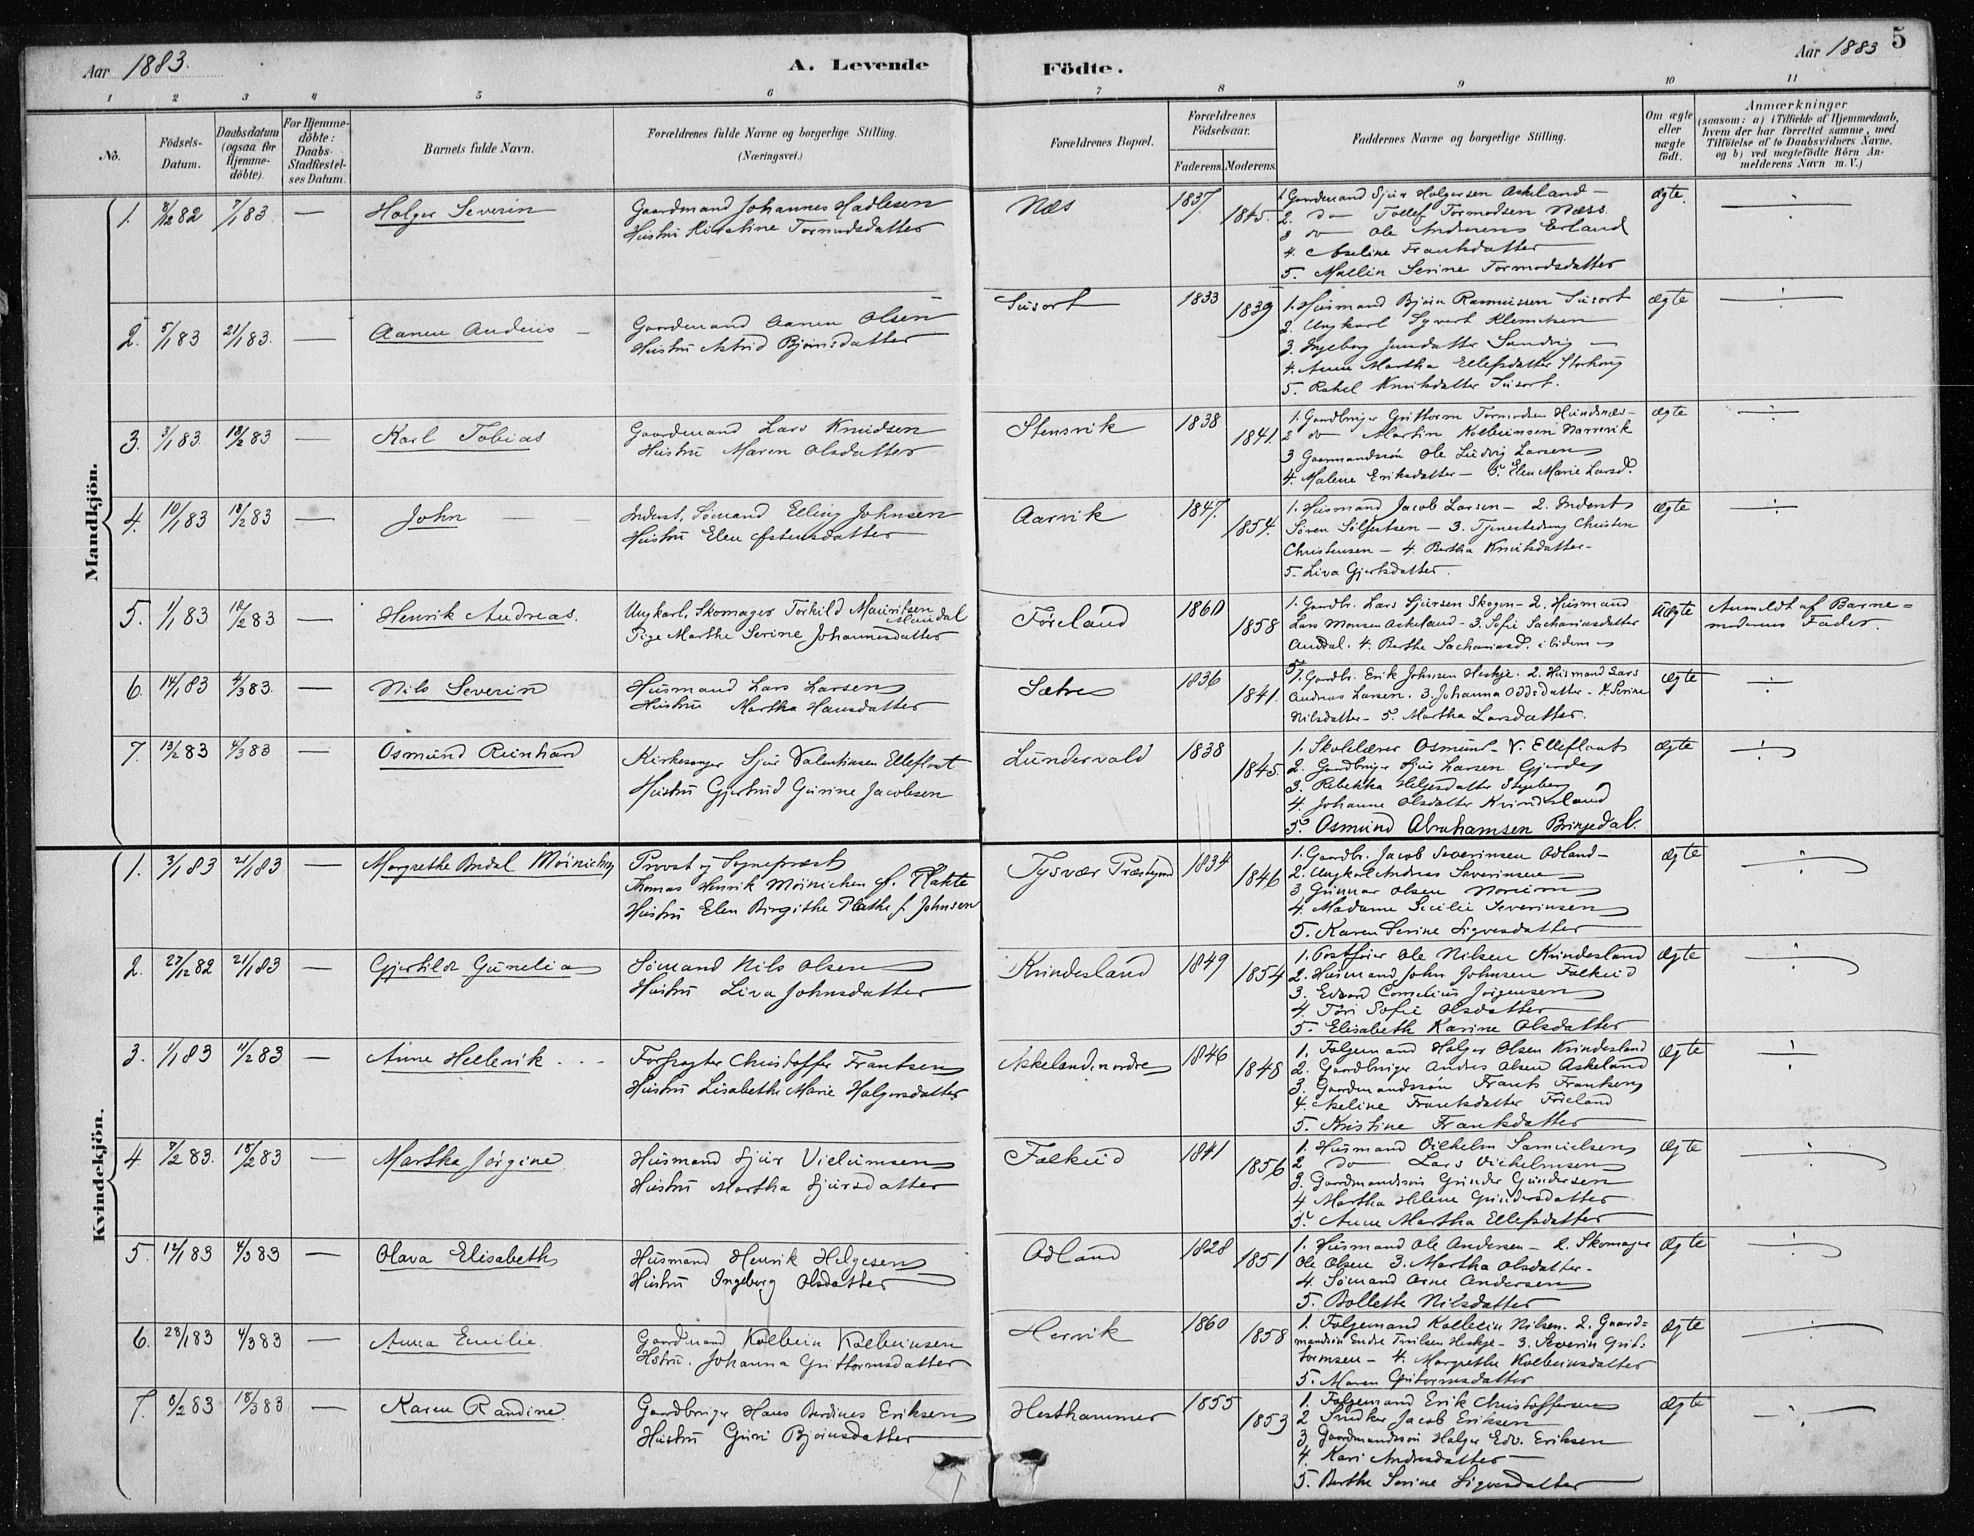 Aar 1883.
A. Levende
Födte.
Aar 1883
5
1 2 3 4 5 6 7 8 9 10 11
No.
Födsels-
Datum.
Daabsdatum
(ogsaa for
Hjemme-
döbte).
For Hjemme-
döbte:
Daabs-
Stadfæstel-
ses Datum.
Barnets fulde Navn.
Forældrenes fulde Navne og borgerlige Stilling.
(Næringsvei.)
Forældrenes Bopæl.
Forældrenes
Födselsaar.
Faderens. Moderens.
Faddernes Navne og borgerlige Stilling.
Om ægte
eller
uægte
födt.
Anmærkninger
(saasom: a) i Tilfælde af Hjemmedaab,
hvem der har forrettet samme, med
Tilföielse af to Daabsvidners Navne.
og b) ved uægtefödte Börn An-
melderens Navn m. V.)
Mandkjön.
1. 8/12 82 7/1 83 — Holger Severin
Gaardmand Johannes Hadlesen
Hustru Kirstine Tormodsdatter
Næs 1837. 1845.
1. Gaardmand Sjur Holgersen Askeland —
2. do Tollef Tormodsen Næss
3 do Ole Andersens Erland
4. Aseline Frantsdatter
5. Mallin Serine Tormodsdatter
Ægte.
2. 5/1 83 21/1 83. — Aanen Andreas
Gaardmand Aanen Olsen
Hustru Astrid Bjönsdatter
Susort 1833 1839
1. Husmand Bjön Rasmussen Susort
2. Ungkarl Syvert Klemetsen
3. Ingeborg Jensdatter Sandvig —
4. Anne Martha Ellefsdatter
5. Rakel Knutsdatter Susort.
Ægte
3. 3/1 83. 18/2 83 — Karl Tobias
Gaardmand Lars Knudsen
Hustru Maren Olsdatter
Stensvik 1838 1841.
1. Gaardbruger Guttorm Tormodsen Hundsnæs —
2 do Martin Kolbeinsen Narrevik
3 Gaarmandssön Ole Ludvig Larsen
4. Malene Eriksdatter — 5. Elen Marie Larsd.
Ægte
4. 10/1 83 18/2 83 — John
Inderst, Sömand Elling Johnsen
Hustru Elen Østensdatter
Aarvik 1847. 1854.
1. Husmand Jacob Larsen — 2. Inderst
Sören Sölfestsen — 3. Tjenestedreng Christen
Christensen — 4. Bertha Knutsdatter —
5. Liva Gjertsdatter.
Ægte
5. 1/1 83 18/2 83 — Henrik Andreas.
Ungkarl, Skomager Torkild Mauritsen
Mandal
Pige Marthe Serine Johannesdatter
Föreland 1860 1858
1. Gaardbr. Lars Sjursen Skogen — 2. Husmand
Lars Monsen Askeland — 3. Sofie Sachariasdatter
Anddal. 4. Berthe Sachariasd. ibidem
5.
Uægte
Anmeldt af Barne =
moderens Fader.
6. 14/1 83 4/3 83. — Nils Severin
Husmand Lars Larsen
Hustru Martha Hansdatter
Sætre 1836 1841.
1. Gaardbr. Erik Johnsen Heskje. 2. Husmand Lars
Andreas Larsen. 3. Johanna Oddsdatter — 4. Serine
Nilsdatter — 5. Martha Larsdatter.
Ægte
7. 13/2 83 4/3 83. — Osmund Reinhard
Kirkesanger Sjur Valentinsen Elleflaat
Hustru Gjertrud Gurine Jacobsen
Lundervald 1838 1845.
1. Skolelærer Osmund V. Elleflaat
2. Gaardbruger Sjur Larsen Gjerde
3. Rebekka Helgesdatter
4. Johanne Olsdatter Kvindesland
5. Osmund Abrahamsen Bringedal.
Ægte
Kvindekjön.
1. 3/1 83 21/1 83 — Margrethe Bredal Möinichen
Provst og Sognepræst
Thomas Henrik Möinichen f. Plahte
Hustru Elen Birgithe Plathe f. Johnsen
Tysvær Præstegaard 1834 1846
1. Gaardbr. Jacob Severinsen Odland —
2. Ungkarl Andreas Severinsen
3 Gunnar Olsen
4. Madame Sicilie Severinsen
5. Karen Serine Sigvesdatter
Ægte
2. 27/12 82 21/1 83 — Gjerhilde Gunelia
Sömand Nils Olsen
Hustru Liva Johnsdatter
Kvindesland 1849 1854
1. Postförer Ole Nilsen Kvindesland
2. Husmand John Johnsen Falkeid
3. Edvard Cornelius Jörgensen
4. Tori Sofie Olsdatter
5. Elisabeth Karine Olsdatter
Ægte
3. 1/1 83 11/2 83 — Anne Hellevik
Forpagter Christoffer Frantsen
Hustru Lisabethe Marie Holgersdatter
Askeland, nordre 1846 1848
1. Folgemand Holger Olsen Kvindesland
2. Gaardbruger Andres Olsen Askeland
3. Gaardmandssön Frants Frantsen
4. Aseline Frantsdatter
5. Kristine Frantsdatter
Ægte
4 7/2 83. 18/2 83 — Martha Jörgine
Husmand Sjur Vielumsen
Hustru Martha Sjursdatter
Falkeid 1841 1856
1. Husmand Vilhelm Samuelsen
2 do Lars Vilhelmsen
3. Gaardmandssön Gunder Gundersen
4 Martha Helene Gundersdatter
5. Anne Martha Ellefsdatter
Ægte
5. 14/1 83 4/3 83 — Olava Elisabeth
Husmand Henrik Helgesen
Hustru Ingeborg Olsdatter
Odland 1828 1851
1. Husmand Ole Andersen — 2. Skomager
Ole Olsen 3. Martha Olsdatter —
4. Sömand Arne Andersen
5. Bollette Nilsdatter
Ægte
6. 28/1 83 4/3 83 — Anna Emilie.
Gaardmand Kolbein Kolbeinsen
Hstru. Johanna Guttormsdatter
Hervik 1860 1858
1. Folgemand Kolbein Nilsen. 2. Gaard=
mandssön Endre Heskje — 3. Severin Gut-
tormsen — 4. Margrethe Kolbeinsdatter
5. Maren Gutormsdatter
Ægte
7. 8/2 83 18/3 83 — Karen Randine.
Gaardbruger Hans Berdines Eriksen
Hustru Guri Bjönsdatter
Hesthammer 1855 1853
1. Folgemand Erik Christoffersen
2 Snedker Jacob Eriksen
3 Gaardmandssön Holger Edv. Eriksen
4. Kari Andersdatter
5. Berthe Serine Sigvesdatter
Ægte